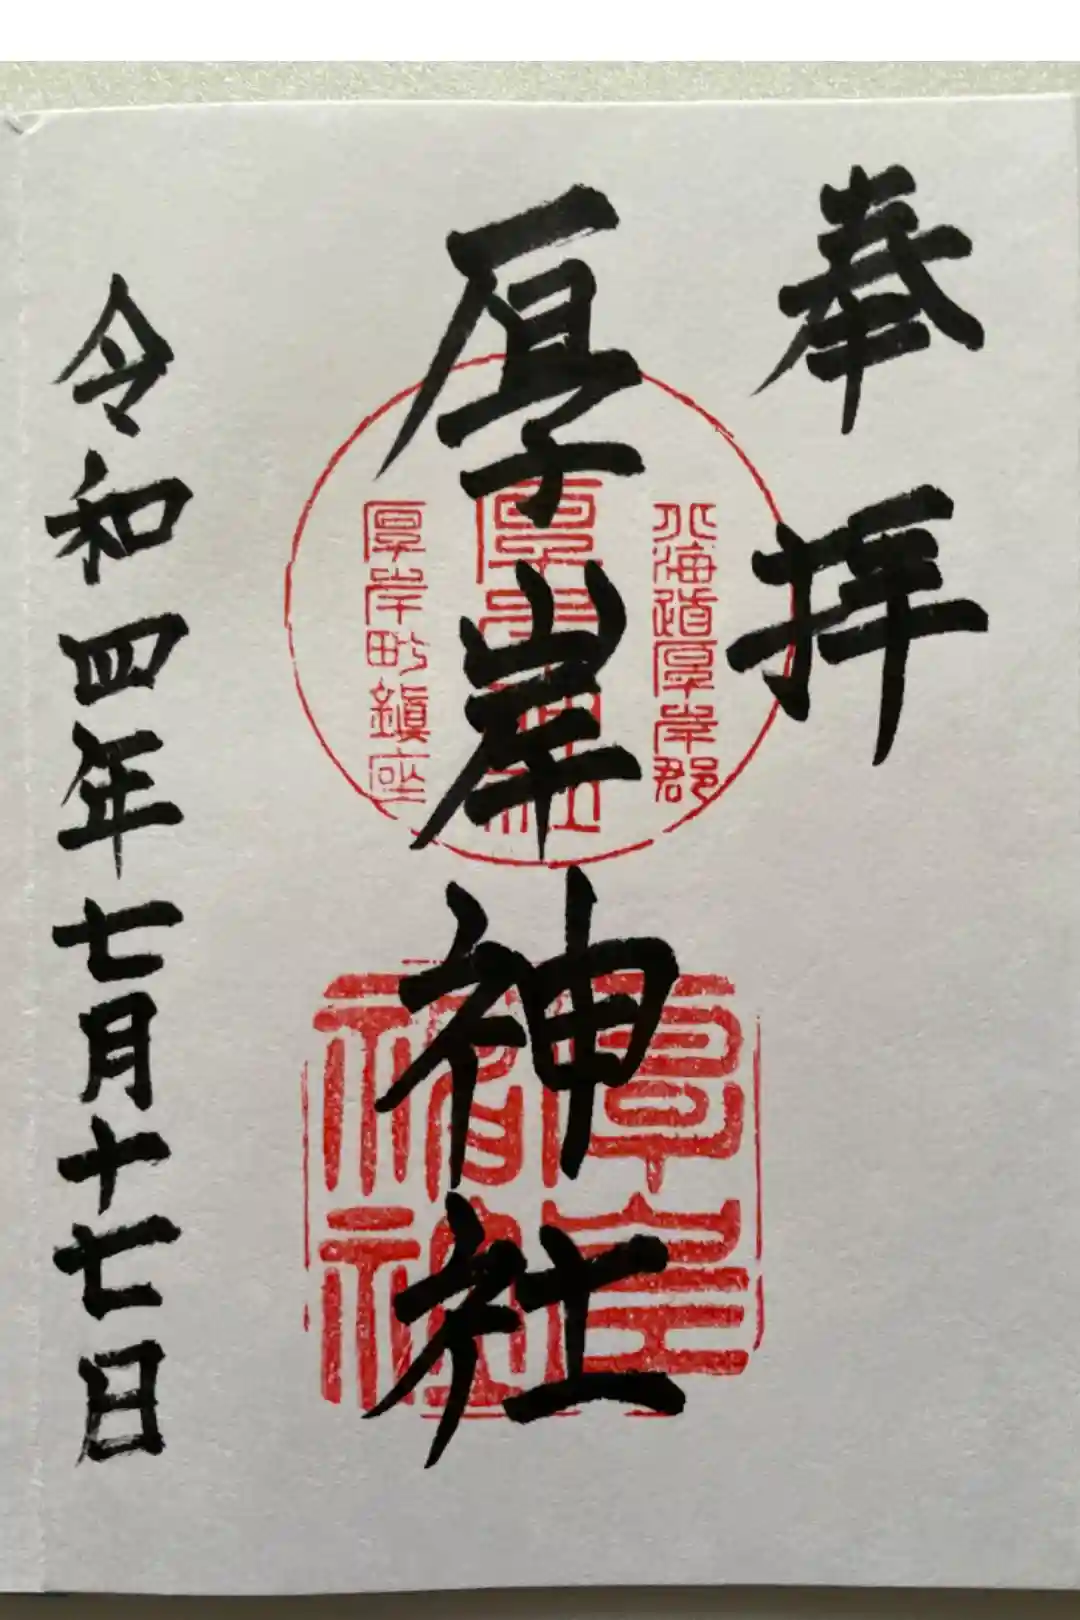 奉拝
北海道厚岸郡
厚岸神社
厚岸神社
厚岸町鎮座
厚岸神社
令和四年七月十七日